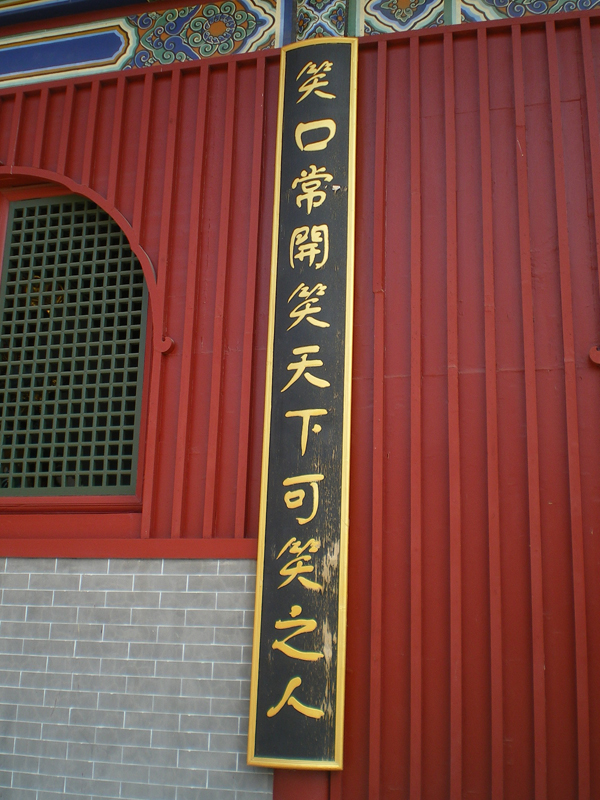 笑口常開笑天下可笑之人